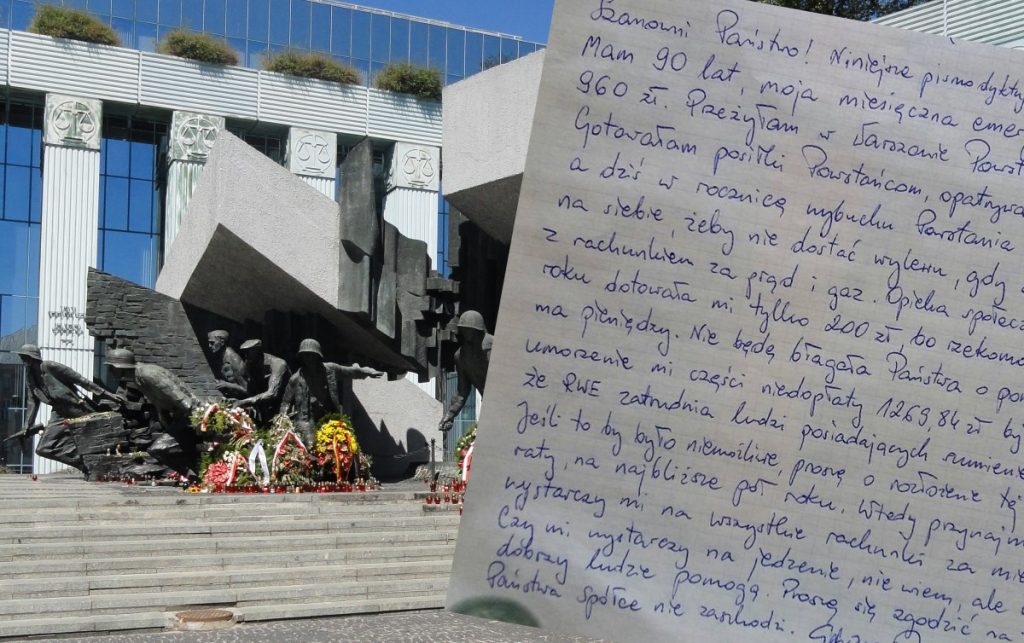 Szanowni Państwo! Niniejsze pismo dykty
Mam 90 lat, moja miesięczna emer
960 zł. Przeżyłam w Warszawie Powst
Gotowałam posiłki Powstańcom, opatrywa
a dziś w rocznicę wybuchu Powstania
na siebie, żeby nie dostać wylewu, gdy
z rachunkiem za prąd i gaz. Opieka społecz
roku dotowała mi tylko 200 zł, bo rzekomo
ma pieniędzy. Nie będę błagała Państwa o
umorzenie mi części niedopłaty 1269,84 zł
że RWE zatrudnia ludzi posiadających sumienie
Jeśli to by było niemożliwe, proszę o rozłożenie tej
raty, na najbliższe pół roku. Wtedy przynajm
wystarczy mi na wszystkie rachunki za mie
Czy mi wystarczy na jedzenie, nie wiem, ale
dobrzy ludzie pomogą. Proszę się zgodzić na
Państwa spółce nie zaszkodzi.